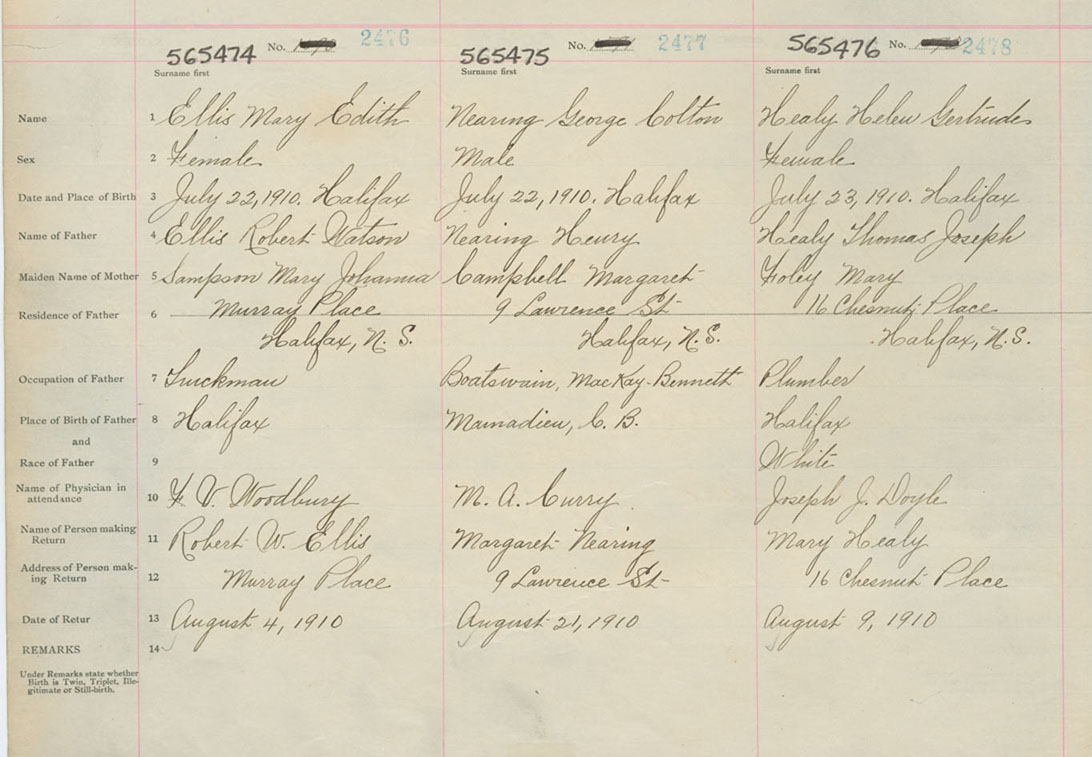 565474 No. 2476 565475 No. 2477 565476 No. 2478
Surname first Surname first Surname first
Name 1 Ellis Mary Edith Nearing George Colton Healy Helen Gertrude
Sex 2 Female Male Female
Date and Place of Birth 3 July 22, 1910. Halifax July 22, 1910. Halifax July 23, 1910. Halifax
Name of Father 4 Ellis Robert Watson Nearing Henry Healy Thomas Joseph
Maiden Name of Mother 5 Sampson Mary Johanna Campbell Margaret Foley Mary
Residence of Father 6 Murray Place 9 Lawrence St 16 Chesnut Place
Halifax, N. S. Halifax, N.S. Halifax, N.S.
Occupation of Father 7 Truckman Boatswain, MacKay-Bennett Plumber
Place of Birth of Father 8 Halifax Mamadieu, C. B. Halifax
and
Race of Father 9 White
Name of Physician in
attendance 10 F. V. Woodbury M. A. Curry Joseph J. Doyle
Name of Person making
Return 11 Robert W. Ellis Margaret Nearing Mary Healy
Address of Person mak-
ing Return 12 Murray Place 9 Lawrence St 16 Chesnut Place
Date of Retur 13 August 4, 1910 August 21, 1910 August 9, 1910
REMARKS 14
Under Remarks state whether
Birth is Twin, Triplet, Ille-
gitimate or Still-birth.